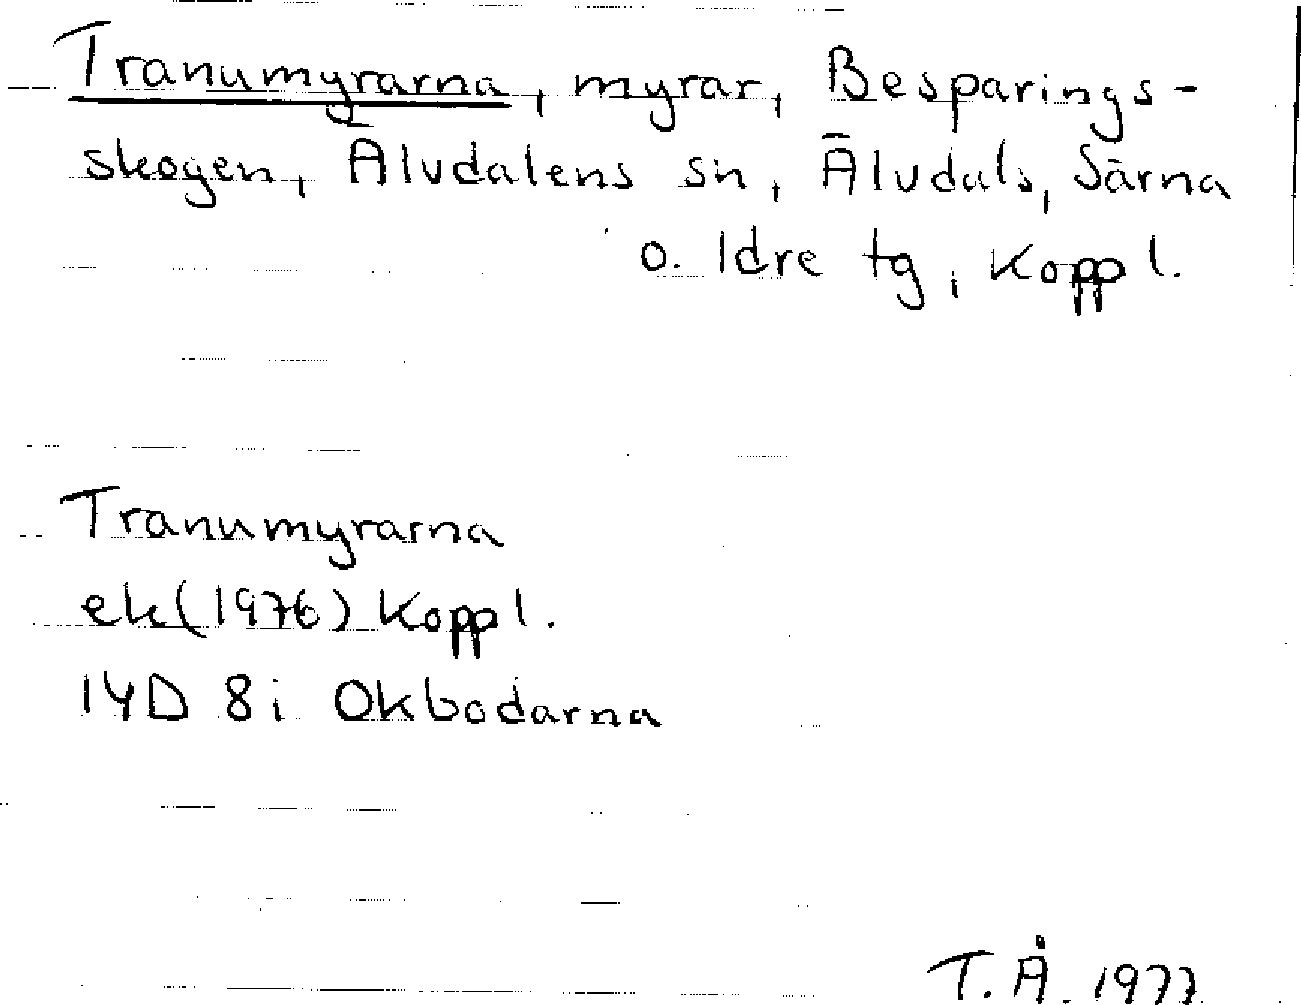 Tranumyrarna, myrar, Besparings-
skogen, Älvdalens sn, Älvdals, Särna
o. Idre tg, Koppl.
Tranumyrarna
ek (1976) Koppl.
14D 8i Okbodarna
T.Å. 1977